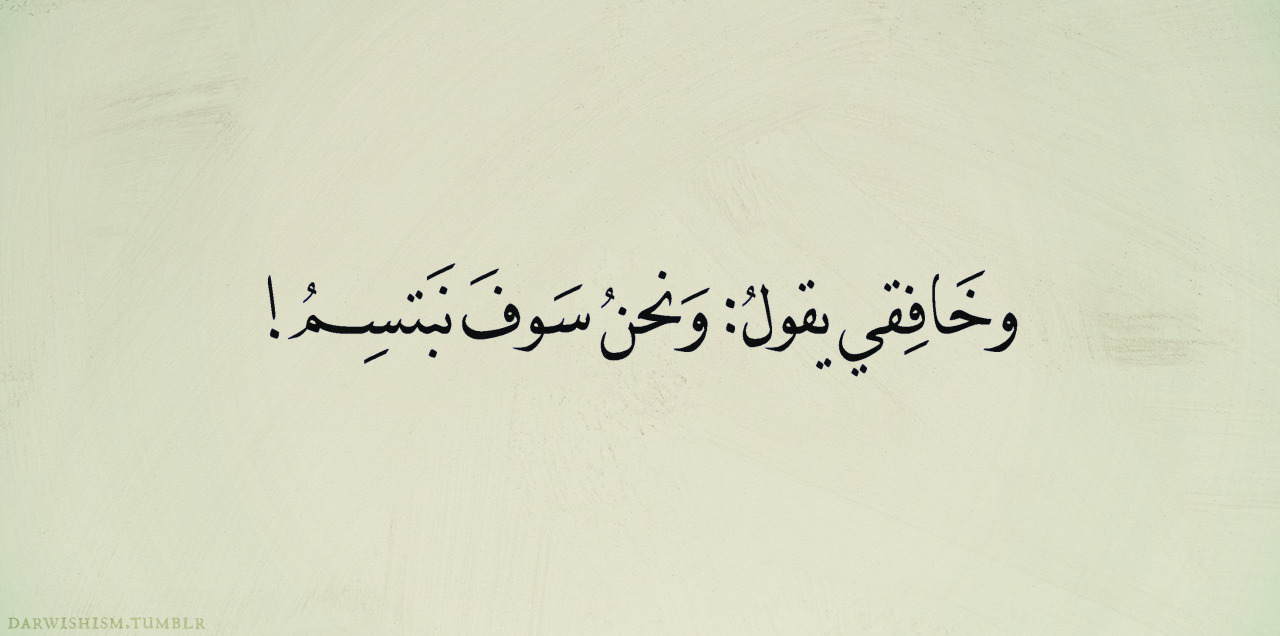 وخَافِقي يقولُ: وَنحنُ سَوفَ نَبَتسِـمُ !
DARWISHISM.TUMBLR